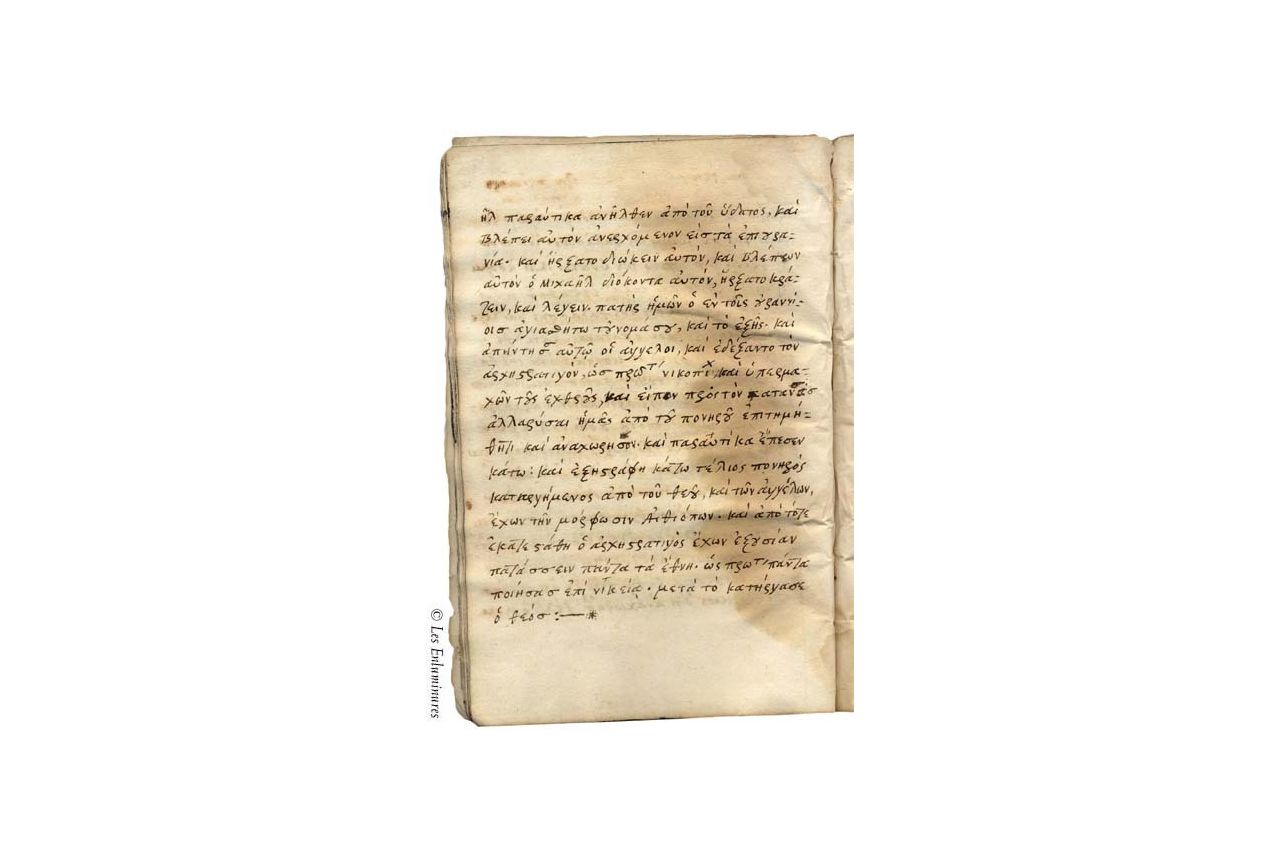 ὴλ παραύτικα ἀνῆλθεν ἀπὸ τοῦ ὕδατος, καὶ
βλέπει αὐτὸν ἀνερχόμενον εἰς τὰ ἐπουρά-
νια. καὶ ἤρξατο διώκειν αὐτόν, καὶ βλέπων
αὐτὸν ὁ Μιχαὴλ διόκοντα αὐτόν, ἤρξατο κρά-
ζειν, καὶ λέγειν. πατὴρ ἡμῶν ὁ ἐν τοῖς οὐραννί-
οις ἁγιασθήτω τοὔνομά σου, καὶ τὸ ἑξῆς. καὶ
ἀπήντησ αὐτῷ οἱ ἄγγελοι, καὶ ἐδέξαντο τὸν
ἀρχηστρατιγόν, ὡς πρωτ νικοπι καὶ ὑπερμα-
χῶν τοὺς ἐχθρούς, καὶ εἶπον πρὸς τὸν σατανᾶς
ἀλλαρύσαι ἡμᾶς ἀπὸ τοῦ πονηροῦ ἐπιτημή-
θητι καὶ ἀναχώρησον. καὶ παραυτίκα ἔπεσεν
κάτω: καὶ ἐξηστράφη κάτω τέλιος πονηρός
κατηργήμενος ἀπὸ τοῦ θεοῦ, καὶ τῶν ἀγγέλων,
ἔχων τὴν μόρφωσιν Αἰθιόπων. καὶ ἀπὸ τότε
ἐκατεστάθη ὁ ἀρχηστρατιγός ἔχων ἐξουσίαν
πατάσσειν πάντα τὰ ἔθνη. ὡς πρωτ πάντα
ποιήσας ἐπινίκεια. μετὰ τὸ κατήργασε
ὁ θεός :—*
© Les Enluminures